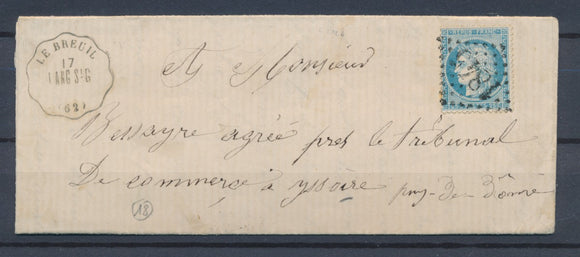 LE BREUIL
17
LANG St G
(62)
REPUB. FRANC.
A Monsieur
Bessayre agréé près le tribunal
De commerce à yssoire puy-de-dôme
18